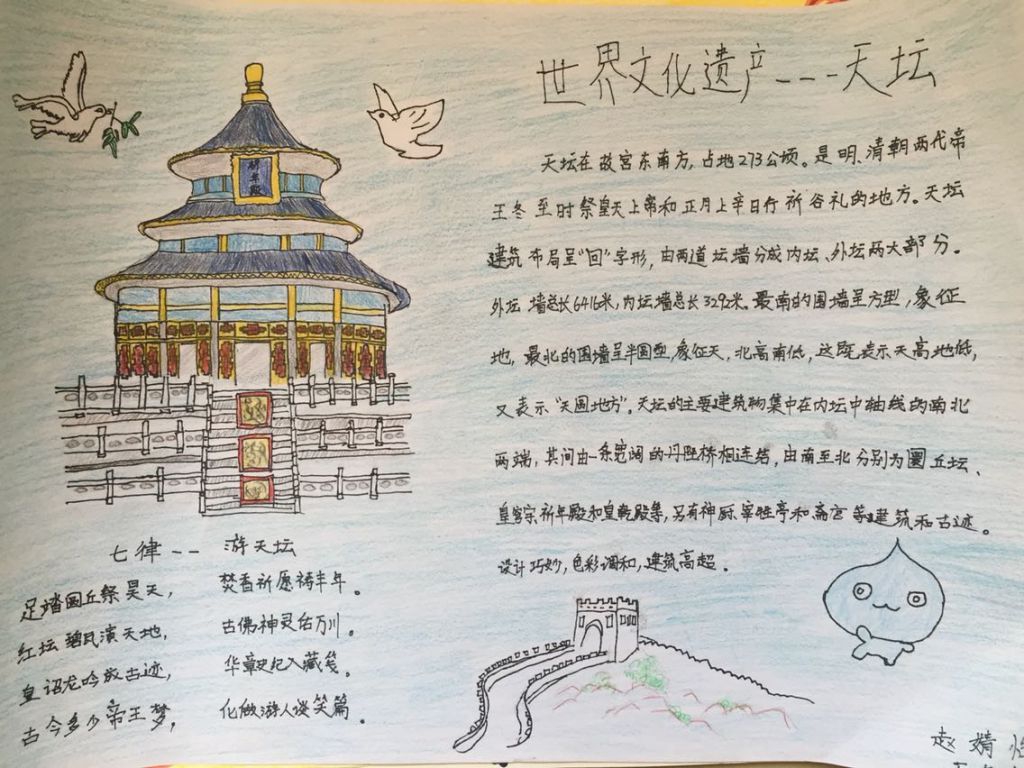 世界文化遗产---天坛
祈年殿
天坛在故宫东南方，占地273公顷。是明、清朝两代帝
王冬至时祭皇天上帝和正月上辛日行祈谷礼的地方。天坛
建筑布局呈“回”字形，由两道坛墙分成内坛、外坛两大部分。
外坛墙总长6416米，内坛墙总长3292米。最南的围墙呈方型，象征
地，最北的围墙呈半圆型，象征天，北高南低，这既表示天高地低，
又表示“天圆地方”。天坛的主要建筑物集中在内坛中轴线的南北
两端，其间由一条宽阔的丹陛桥相连结，由南至北分别为圜丘坛、
皇穹宇祈年殿和皇乾殿等，另有神厨宰牲亭和斋宫等建筑和古迹。
设计巧妙，色彩调和，建筑高超。
七律-- 游天坛
足踏圜丘祭昊天， 焚香祈愿祷丰年。
红坛碧瓦演天地， 古佛神灵佑万川。
皇诏龙吟成古迹， 华章史纪入藏笺。
古今多少帝王梦， 化做游人谈笑篇。
赵婧